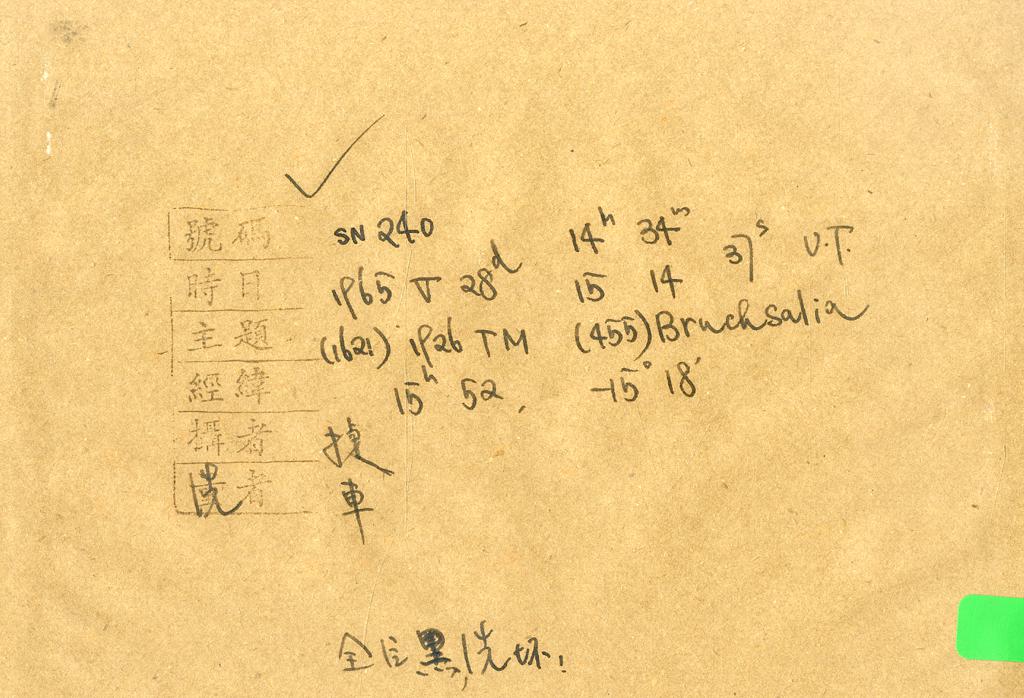 號碼 SN 240 14h 34m 37s U.T.
時日 1965 V 28d 15 14
主題 (1621) 1926 TM (455) Bruchsalia
經緯 15h 52, -15° 18'
攝者
洗者 車
全 黑,洗坏!